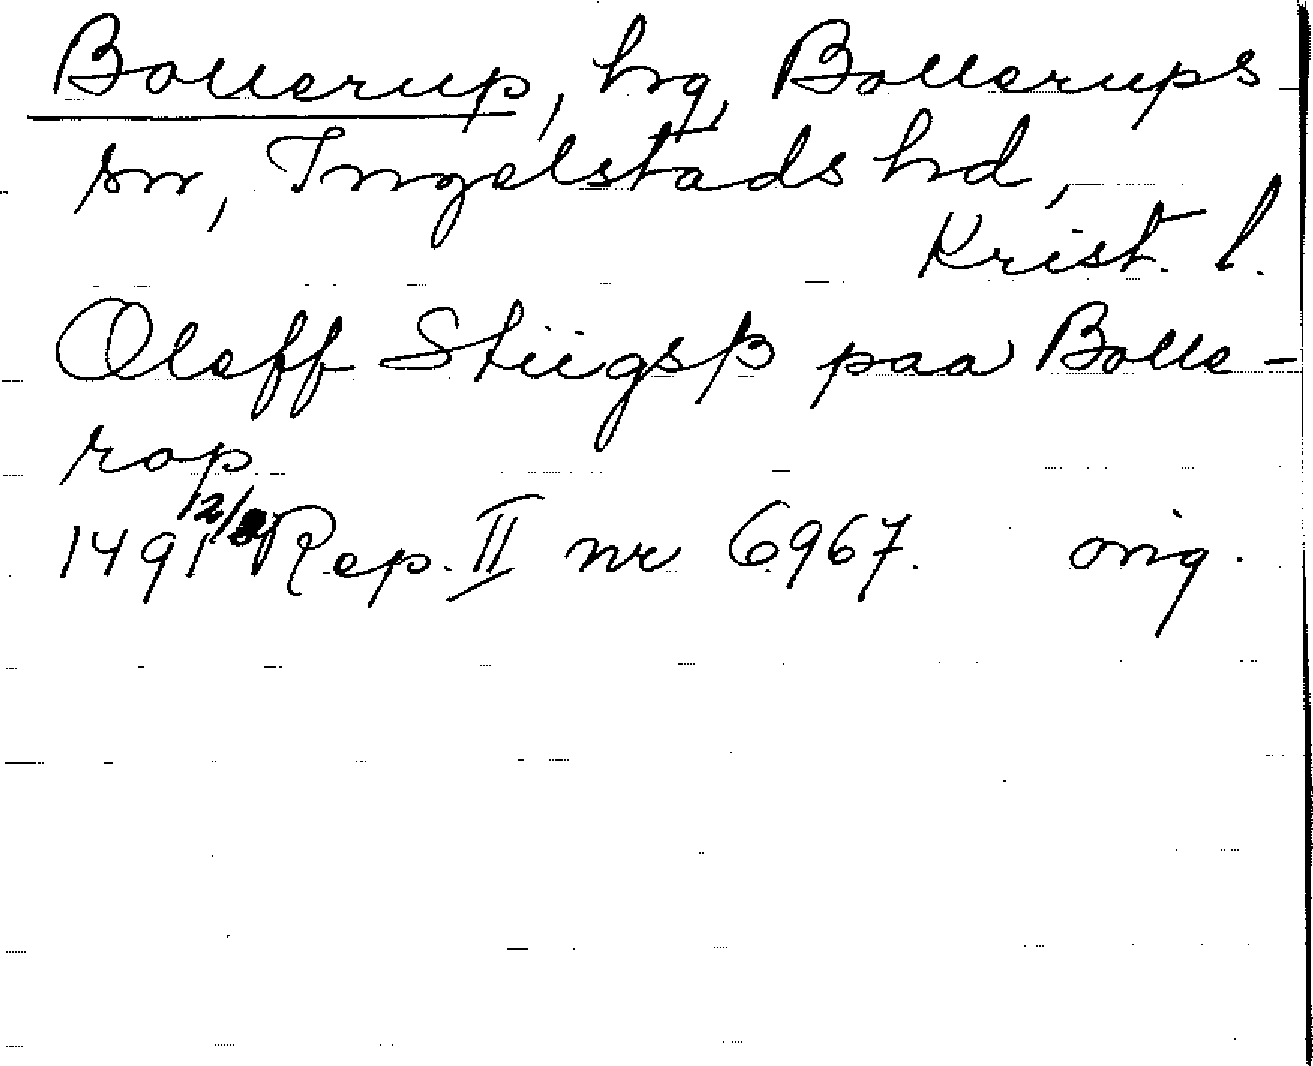 Bollerup, hg, Bollerups
sn, Ingelstads hd,
Krist. l.
Oleff Stiigsß paa Bolle-
rop
1491 Rep. II nr 6967. orig.